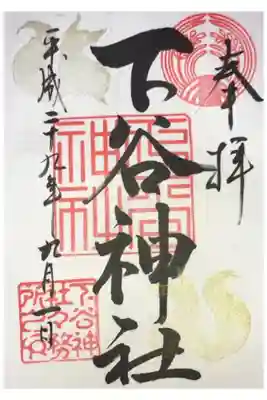 奉拝
下谷神社
平成二十九年九月一日
下谷神
社社務
所之印